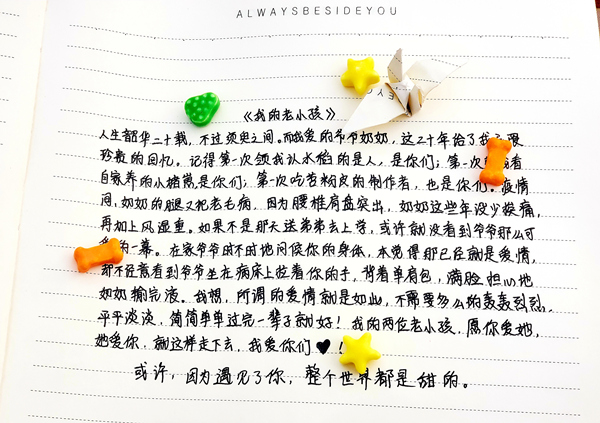 ALWAYSBESIDEYOU
《我的老小孩》
人生韶华二十载，不过须臾之间。而我爱的爷爷奶奶，这二十年给了我限
珍贵的回忆。记得第一次领我认水稻的是人，是你们；第一次看
自家养的小猪崽是你们；第一次吃苕粉皮的制作者，也是你们。疫情
间，奶奶的腿又犯老毛病，因为腰椎肩盘突出，奶奶这些年没少挨痛，
再加上风湿重。如果不是那天送弟弟去上学，或许就没看到爷爷那么可
爱的一幕。在家爷爷时不时地问候你的身体，本觉得那已经就是爱情，
却不经意看到爷爷坐在病床上拉着你的手，背着单肩包，满脸担心地
如奶输完液。我想，所谓的爱情就是如此，不需要多么的轰轰烈烈，
平平淡淡，简简单单过完一辈子就好！我的两位老小孩，愿你爱她，
她爱你，就这样走下去，我爱你们♥！
或许，因为遇见了你，整个世界都是甜的。